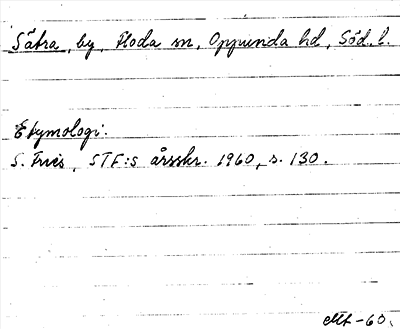 Sätra, by, Floda sn, Oppunda hd, Söd. l.
Etymologi.
S. Fries, STF:s årsskr. 1960, s. 130.
-60.